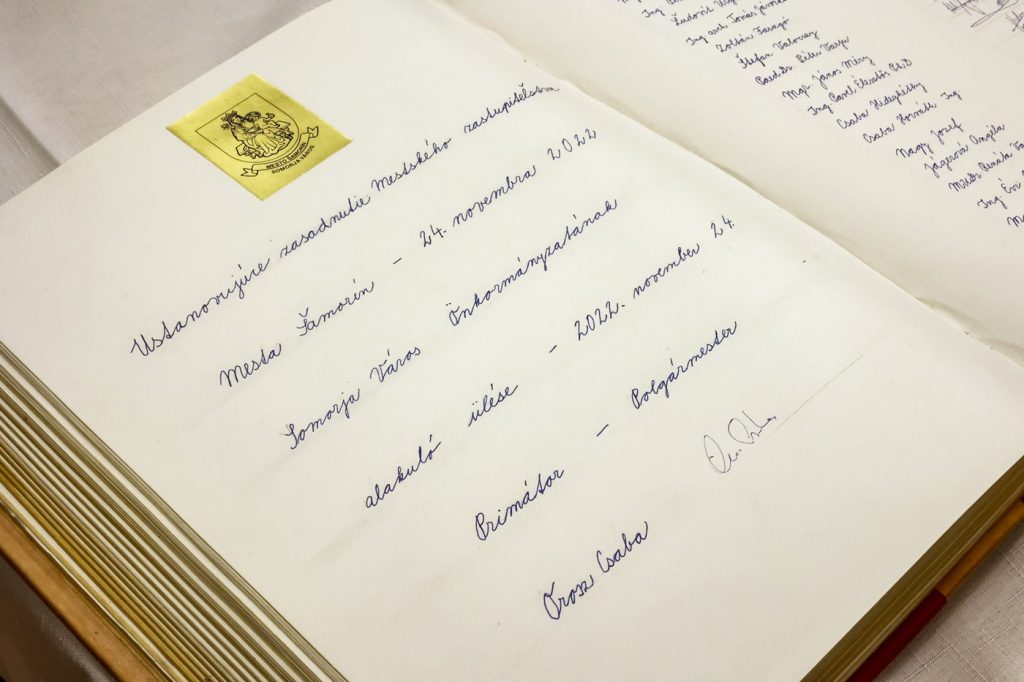 MESTO ŠAMORÍN
SOMORJA VÁROS
Ustanovujúce zasadnutie Mestského zastupiteľstva
Mesta Šamorín - 24. novembra 2022
Somorja Város Önkormányzatának
alakuló ülése - 2022. november 24.
Primátor - Polgármester
Orosz Csaba
Ing
Ľudovít
Ing arch. Tomáš
Zoltán Faragó
Štefan Valovay
Varga
Mgr. János Mérg
Ing Károl
Csaba Hideghéthy
Csaba Horváth Ing
Nagy Jozef
Jágerová Angela
MUDr Renata
Ing Évi